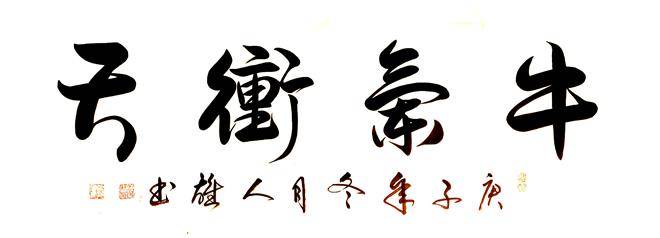 牛氣衝天
庚子年冬月人雄书